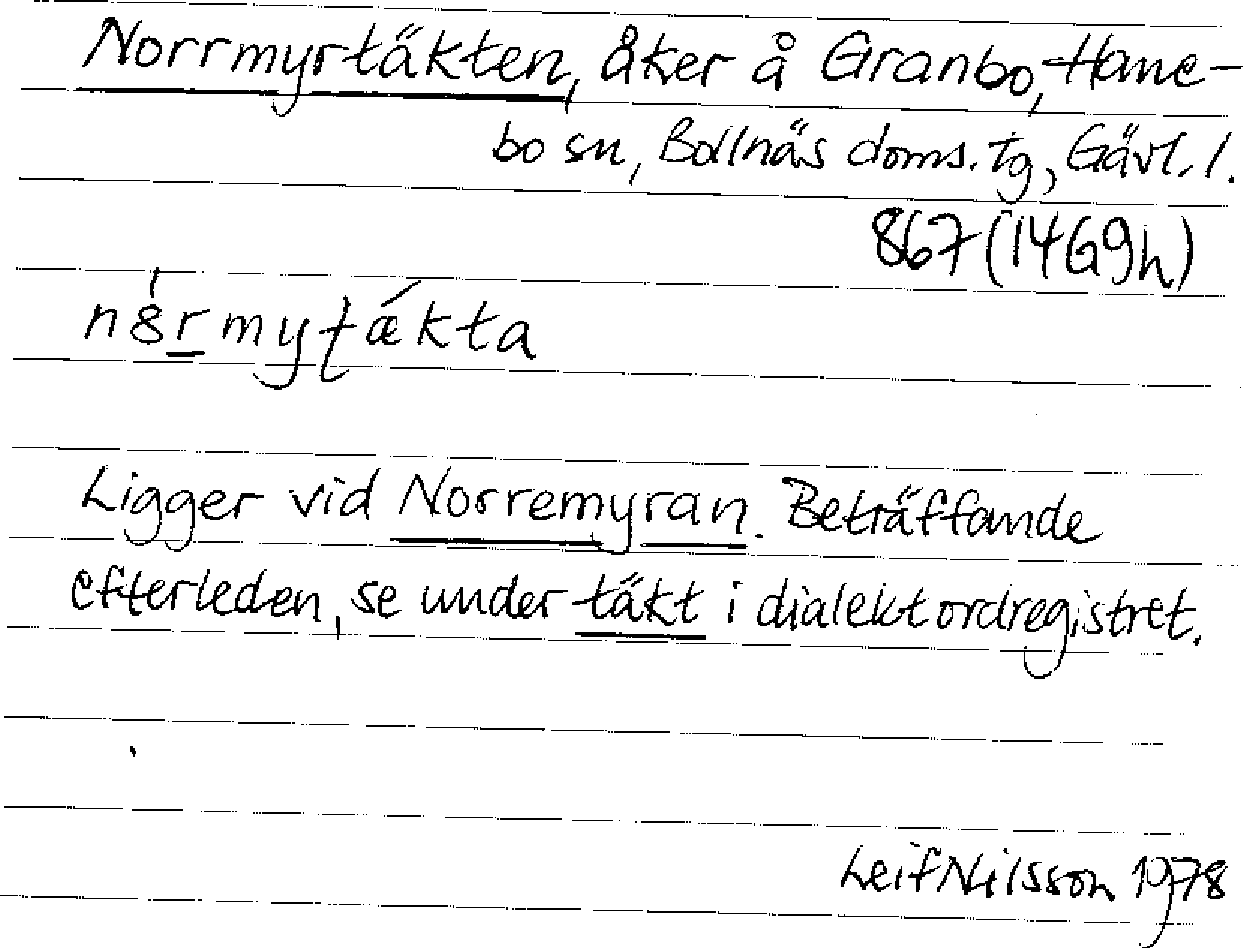 Norrmyrtäkten, åker å Granbo, Hane-
bo sn, Bollnäs doms. tg, Gävl. l.
867 (14G9h)
Ligger vid Norremyran. Beträffande
efterleden, se under täkt i dialektordregistret.
Leif Nilsson 1978